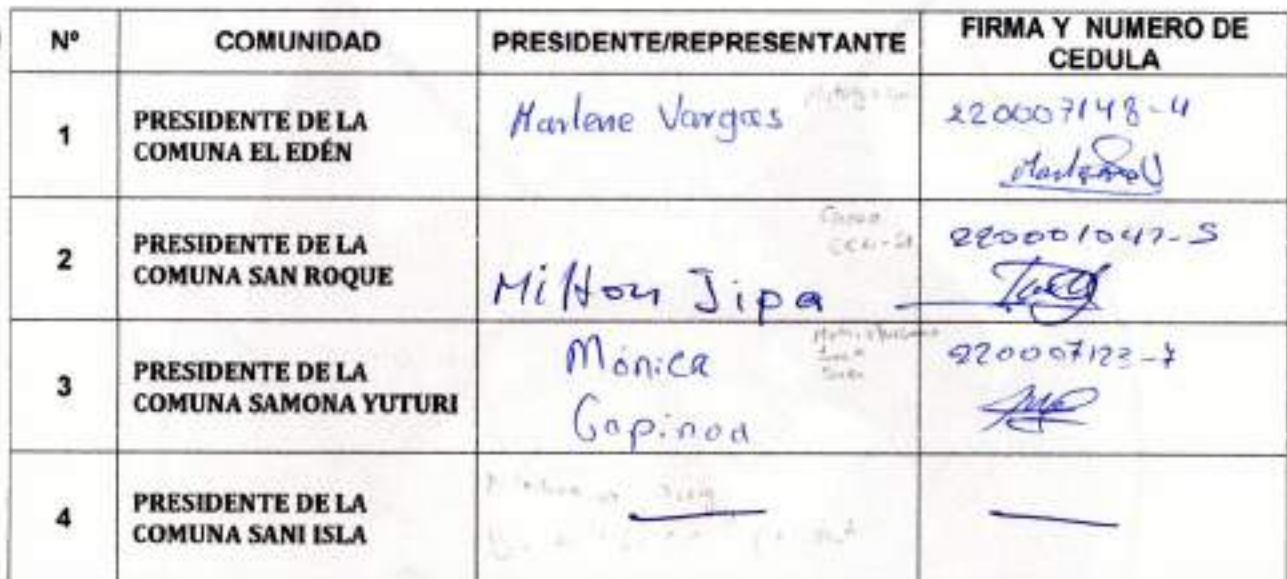 Nº COMUNIDAD PRESIDENTE/REPRESENTANTE FIRMA Y NUMERO DE
CEDULA
1 PRESIDENTE DE LA
COMUNA EL EDÉN
Marlene Vargas
220007148-4
2 PRESIDENTE DE LA
COMUNA SAN ROQUE
Milton Jipa
220001047-5
3 PRESIDENTE DE LA
COMUNA SAMONA YUTURI
Mónica
220007123-7
4 PRESIDENTE DE LA
COMUNA SANI ISLA